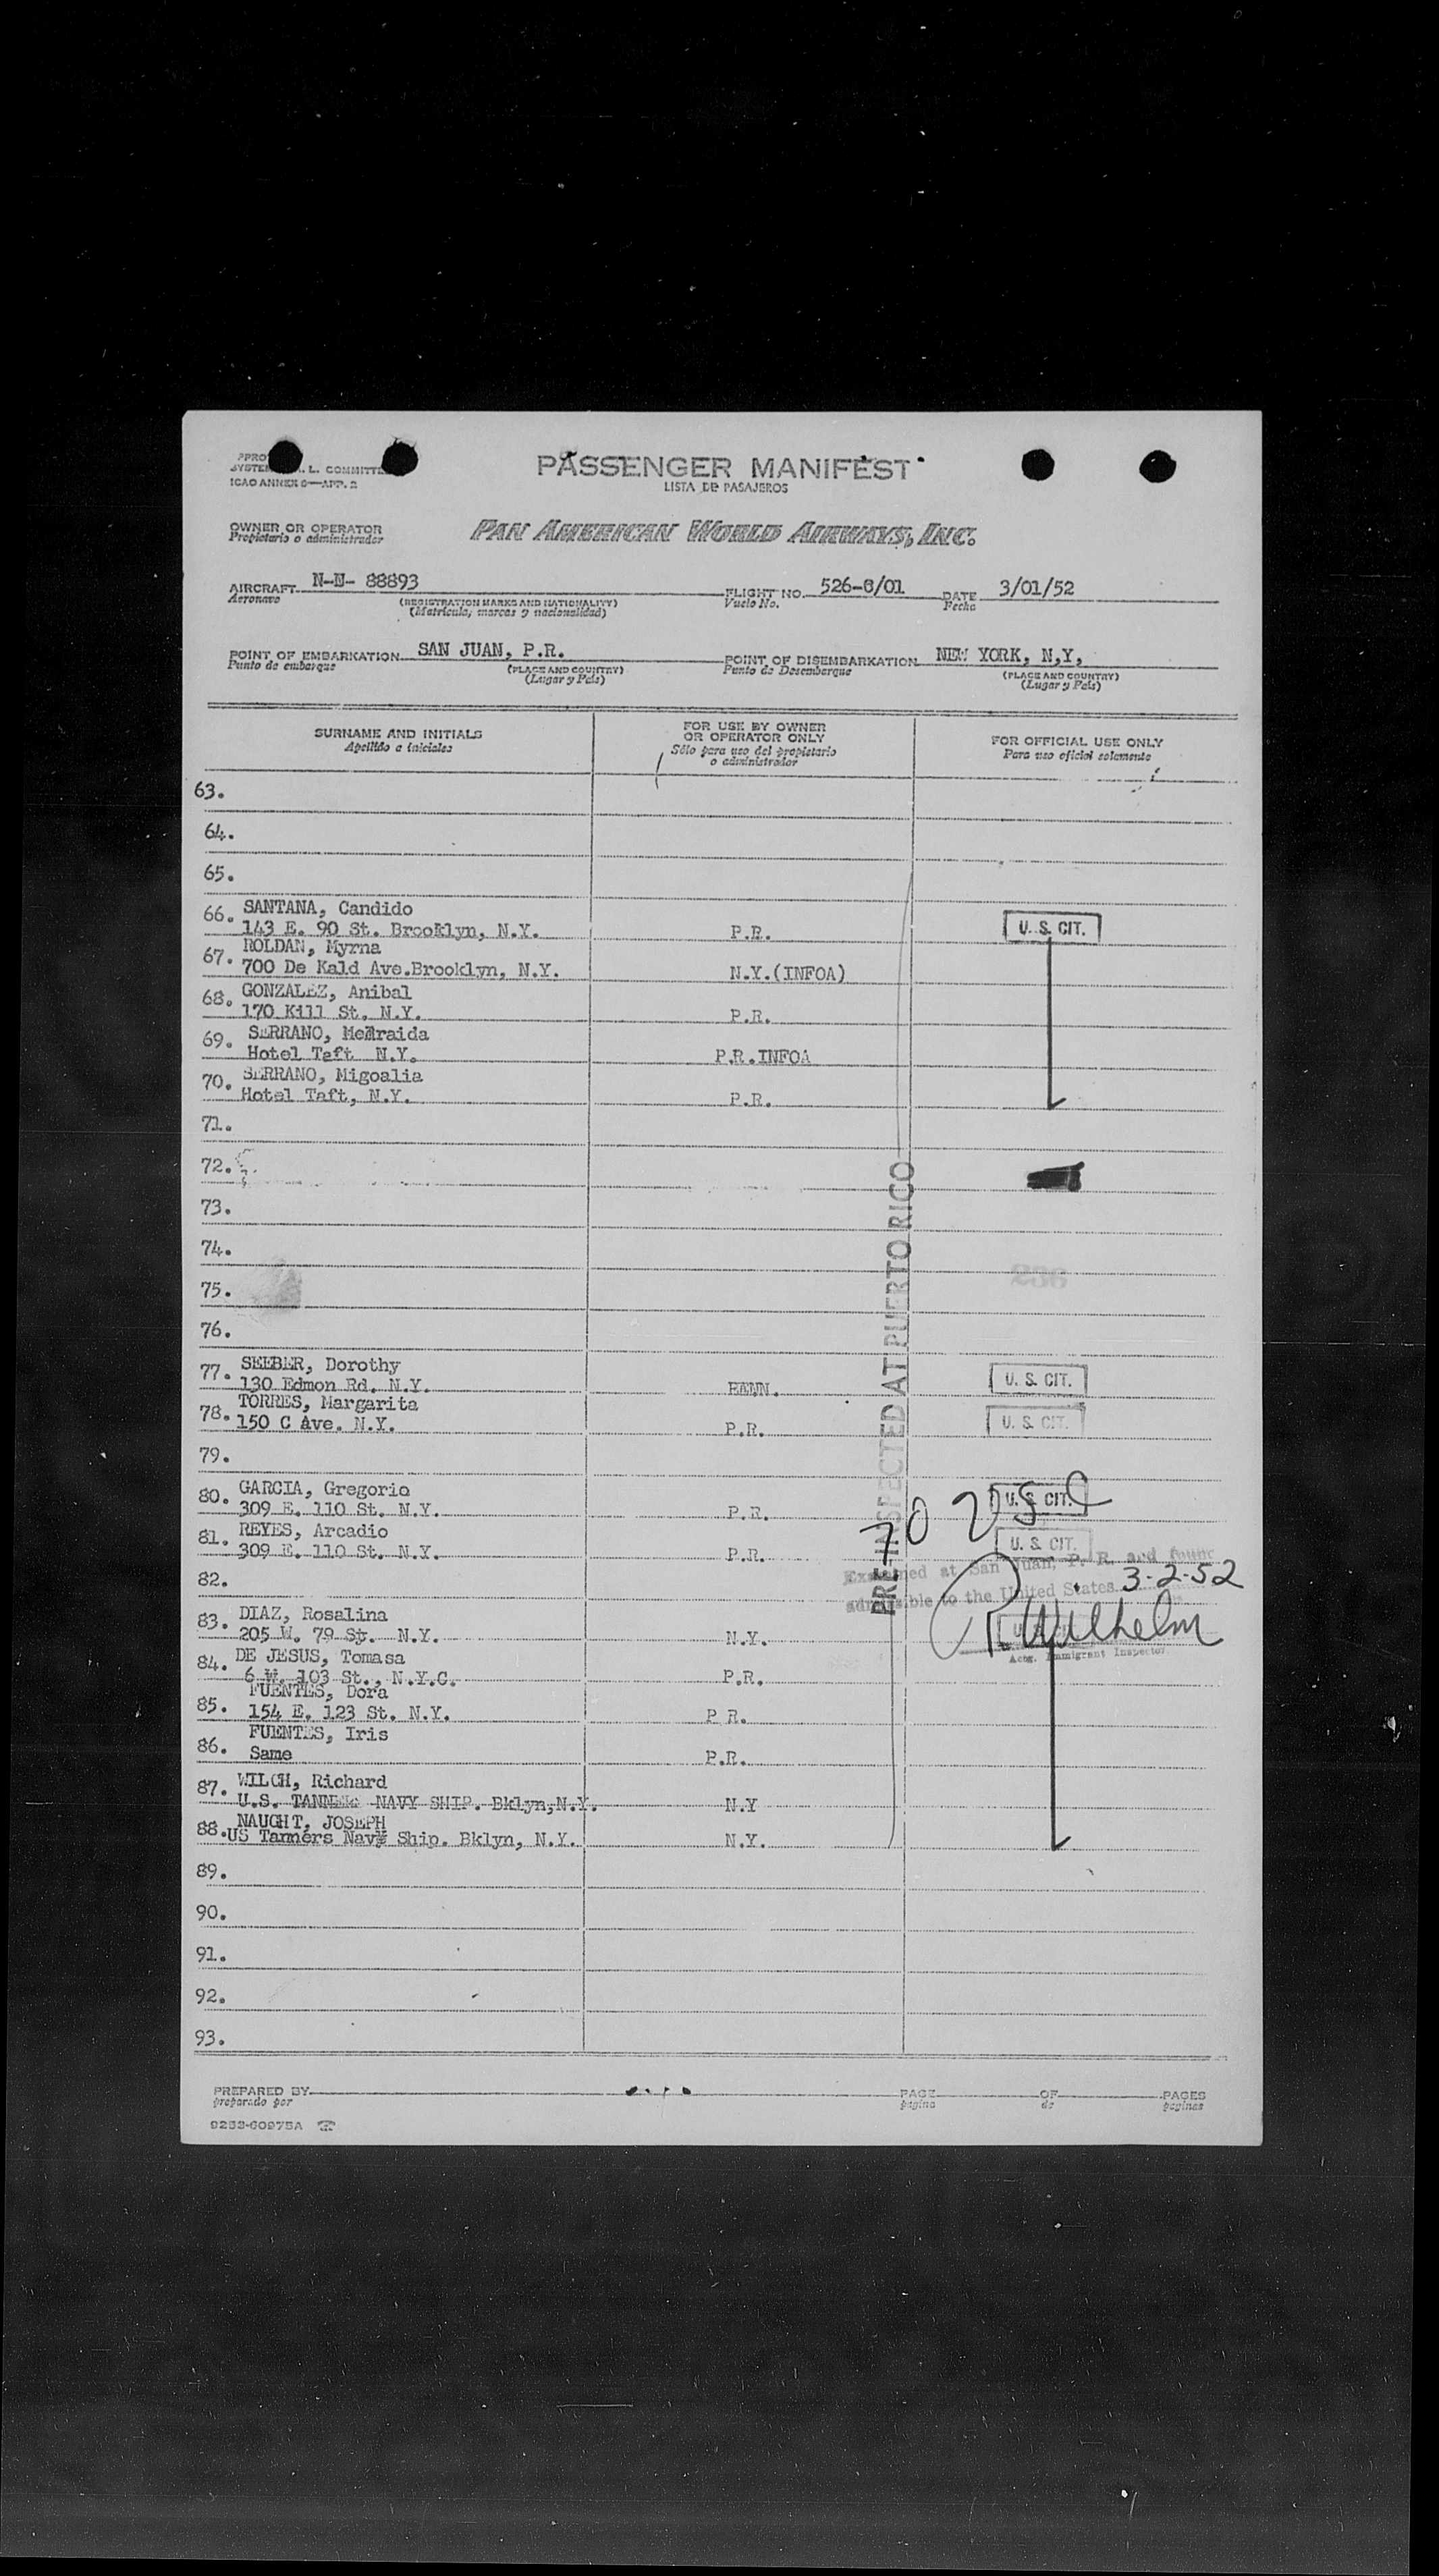 PASSENGER MANIFEST
LISTA DE PASAJEROS
L. COMMITTE
ICAO ANNEX 9—APP. 2
OWNER OR OPERATOR
Propietario o administrador
PAN AMERICAN WORLD AIRWAYS, INC.
AIRCRAFT N-N- 88893 FLIGHT NO. 526-8/01 DATE 3/01/52
Aeronave (REGISTRATION MARKS AND NATIONALITY) Vuelo No. Fecha
(Matricula, marcas y nacionalidad)
POINT OF EMBARKATION SAN JUAN, P.R. POINT OF DISEMBARKATION NEW YORK, N,Y,
Punto de embarque (PLACE AND COUNTRY) Punto de Desembarque (PLACE AND COUNTRY)
(Lugar y País) (Lugar y País)
SURNAME AND INITIALS
Apellido e iniciales
FOR USE BY OWNER
OR OPERATOR ONLY
Sólo para uso del propietario
o administrador
FOR OFFICIAL USE ONLY
Para uso oficial solamente
63.
64.
65.
66. SANTANA, Candido
143 E. 90 St. Brooklyn, N.Y. P.R. U. S. CIT.
67. ROLDAN, Myrna
700 De Kald Ave.Brooklyn, N.Y. N.Y.(INFOA)
68. GONZALEZ, Anibal
170 Kill St. N.Y. P.R.
69. SERRANO,
Hotel Taft N.Y. P.R.INFOA
70. SERRANO, Migoalia
Hotel Taft, N.Y. P.R.
71.
72.
73.
74.
236
75.
76.
77. SEEBER, Dorothy
130 Edmon Rd. N.Y. U. S. CIT.
78. TORRES, Margarita
150 C Ave. N.Y. P.R. U. S. CIT.
79.
80. GARCIA, Gregorio
309 E. 110 St. N.Y. P.R. U. S. CIT.
70 USC
81. REYES, Arcadio
309 E. 110 St. N.Y. P.R. U. S. CIT.
PRE-INSPECTED AT PUERTO RICO
Examined at San Juan, P. R. and found
82.
admissible to the United States 3-2-52
83. DIAZ, Rosalina
205 W. 79 St. N.Y. N.Y.
R. Wilhelm
Actg. Immigrant Inspector
84. DE JESUS, Tomasa
6 W. 103 St., N.Y.C. P.R.
85. FUENTES, Dora
154 E. 123 St. N.Y. P R.
86. FUENTES, Iris
Same P.R.
87. WILCH, Richard
U.S. NAVY SHIP. Bklyn,N.Y. N.Y
88. NAUGHT, JOSEPH
US Tanners Navy Ship. Bklyn, N.Y. N.Y.
89.
90.
91.
92.
93.
PREPARED BY PAGE OF PAGES
preparado por página de páginas
9253-60975A